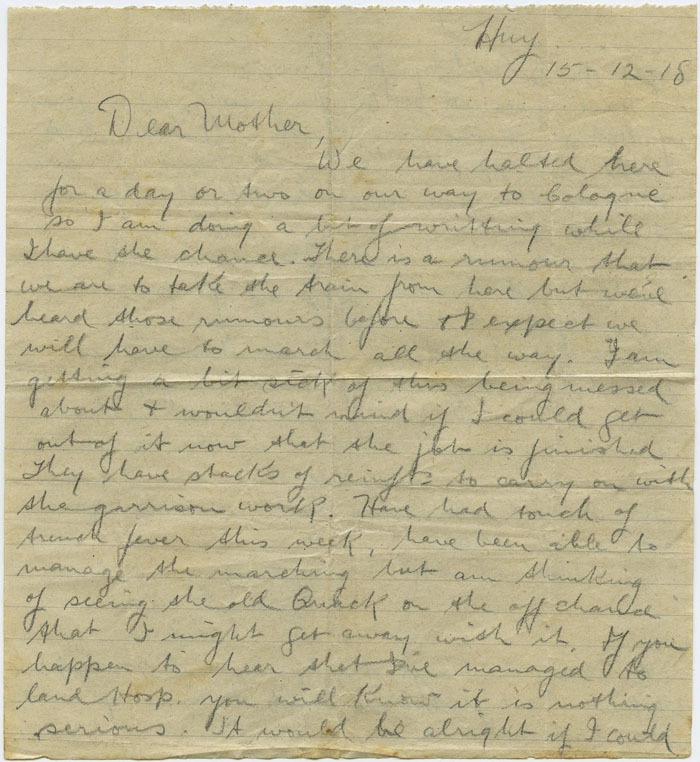 Huy
15-12-18
Dear Mother,
We have halted here
for a day or two on our way to Cologne
so I am doing a bit of writting while
I have the chance. There is a rumour that
we are to take the train from here but we've
heard those rumours before & I expect we
will have to march all the way. I am
getting a bit sick of this being messed
about & wouldn't mind if I could get
out of it now that the job is finished
They have stacks of reinfts to carry on with
the garrison work. Have had touch of
trench fever this week, have been able to
manage the marching but am thinking
of seeing the old Quack on the off chance
that I might get away with it. If you
happen to hear that I've managed to
land Hosp. you will know it is nothing
serious. It would be alright if I could